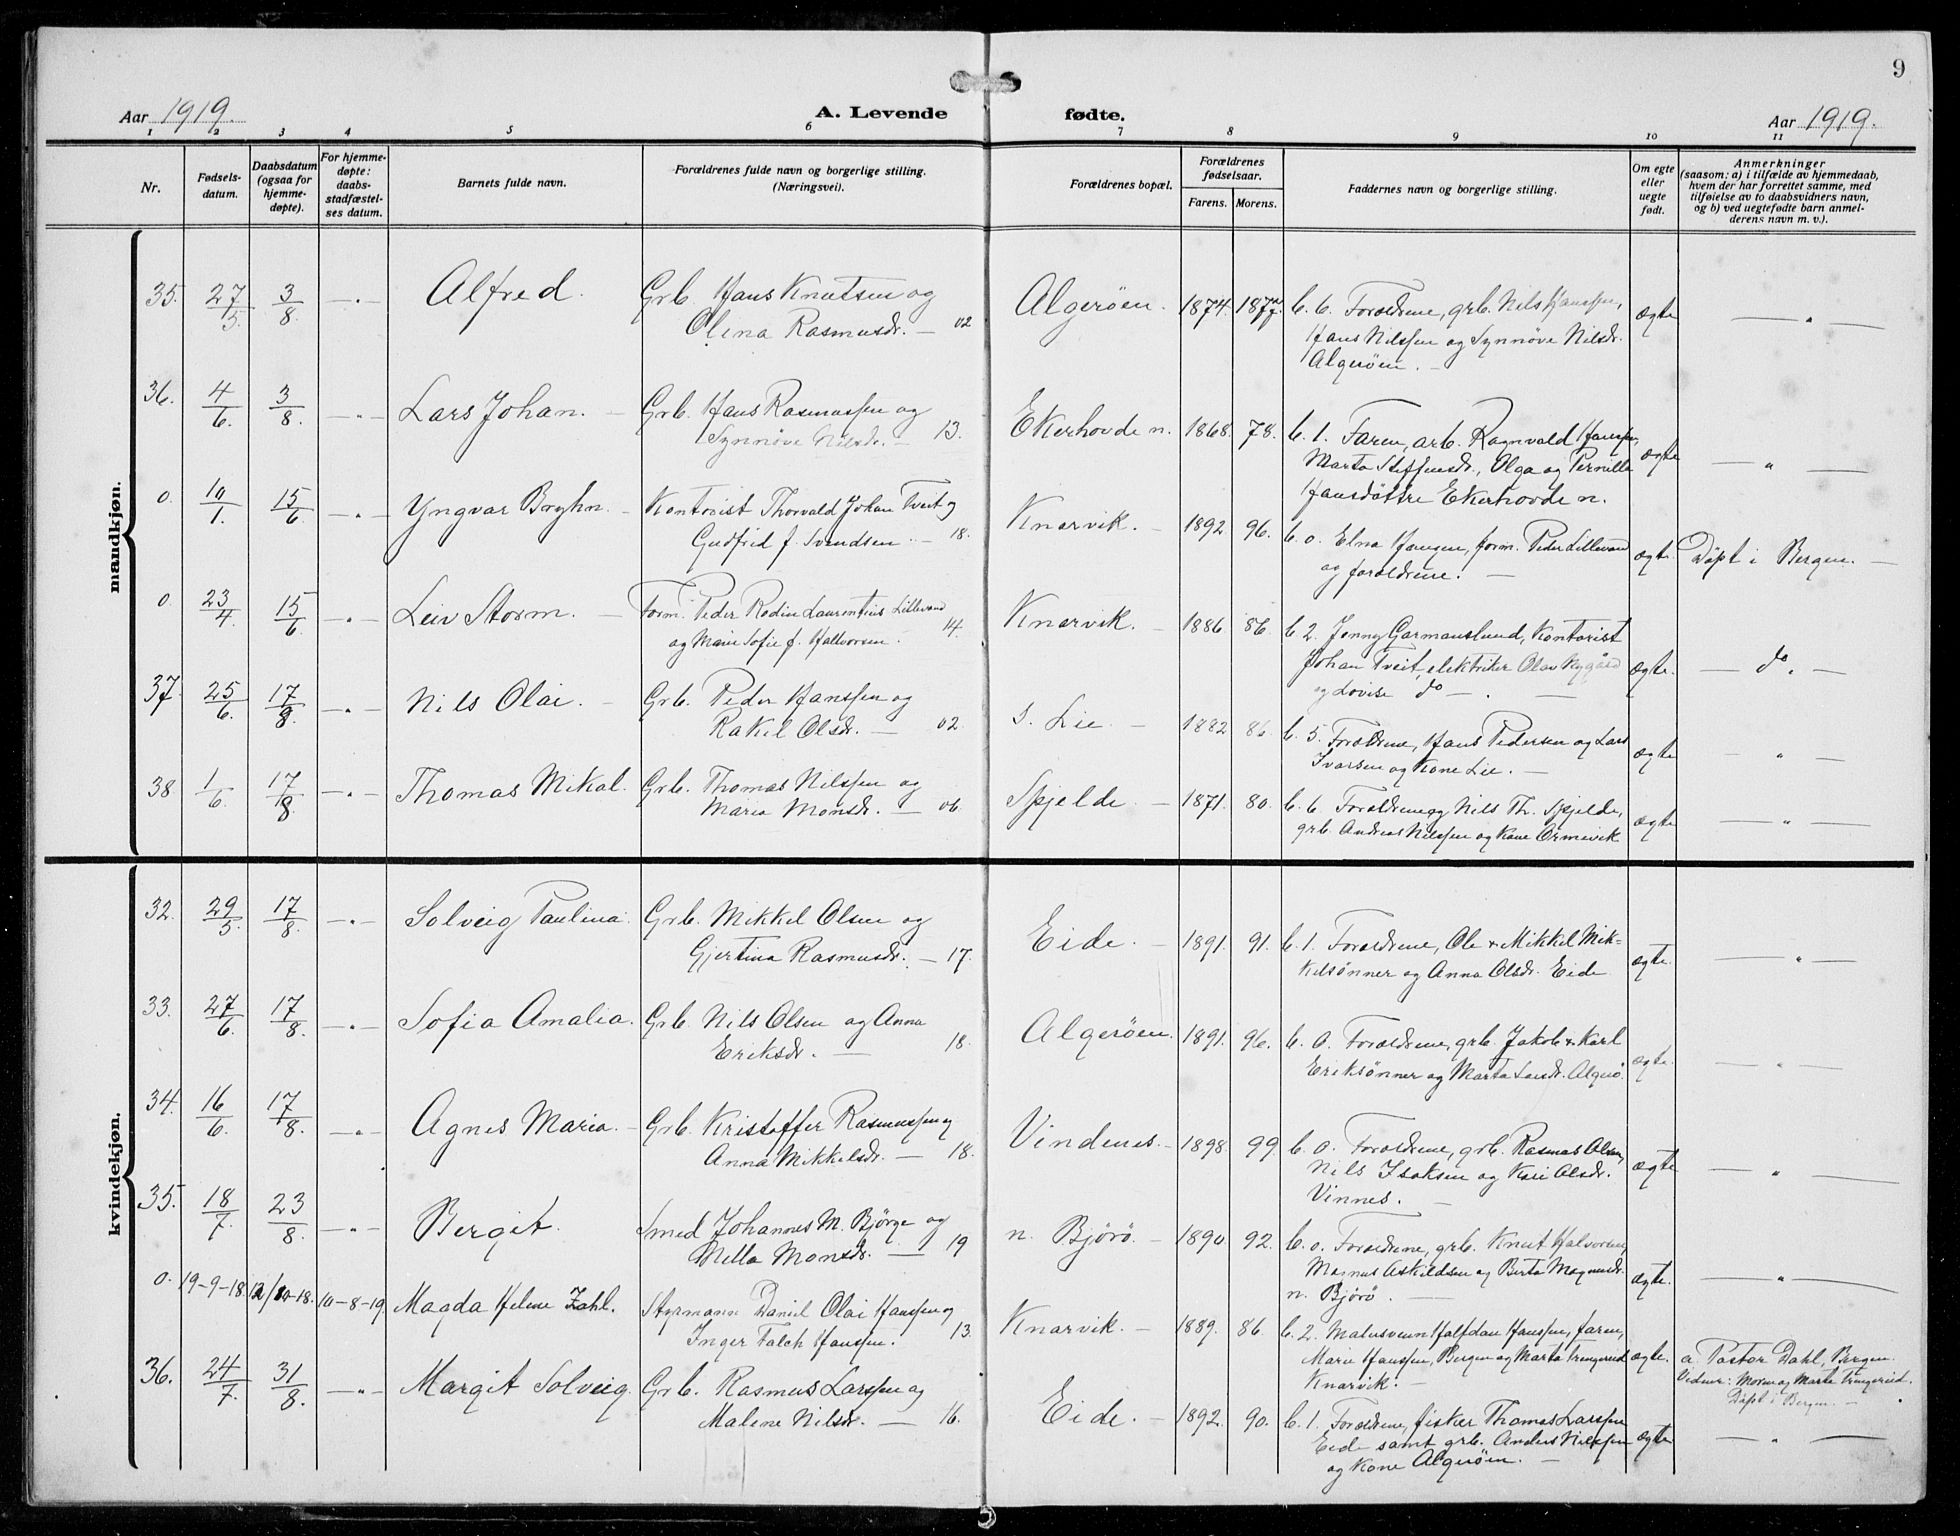 9
Aar 1919.
A. Levende fødte.
Aar 1919.
1 2 3 4 5 6 7 8 9 10 11
Nr.
Fødsels-
datum.
Daabsdatum
(ogsaa for
hjemme-
døpte).
For hjemme-
døpte:
daabs-
stadfæstel-
ses datum.
Barnets fulde navn.
Forældrenes fulde navn og borgerlige stilling.
(Næringsvei).
Forældrenes bopæl.
Forældrenes
fødselsaar.
Farens. Morens.
Faddernes navn og borgerlige stilling.
Om egte
eller
uegte
født.
Anmerkninger
(saasom: a) i tilfælde av hjemmedaab,
hvem der har forrettet samme, med
tilføielse av to daabsvidners navn,
og b) ved uegtefødte barn anmel-
derens navn m. v.).
mandkjøn.
35. 27/5. 3/8 —„— Alfred. Grb. Hans Knutsen og
Olena Rasmusdr. — 02
Algerøen. 1874. 1877. b. 6. Forældrene, grb. Nils Hanssen,
Hans Nilssen og Synnøve Nilsdr.
Algerøen. —
ægte — „ —
36. 4/6. 3/8. —„— Lars Johan. — Grb. Hans Rasmussen og
Synnøve Nilsdr. — 13.
Ekerhovde n. 1868. 78. b. 1. Faren, arb. Ragnvald Hanssen,
Marta Steffensdr., Olga og Pernille
Hansdøttre Ekerhovde n.
ægte — „ —
0. 19/1. 15/6 —„— Yngvar Bryhn. — Kontorist Thorvald Johan Tveit og
Gudfrid f. Svendsen. — 18.
Knarvik. — 1892 96. b. 0. Elna Haugen, form. Peder Lillevand
og forældrene. —
ægte. Døpt i Bergen. —
0. 23/4. 15/6. —„— Leiv Storm. — Form. Peder Rodin Laurentius Lillevand
og Marie Sofie f. Halvorsen. 14.
Knarvik. — 1886. 86. b. 2. Jenny Garmanslund, Kontorist
Johan Tveit, elektriker Olav Nygård
og Lovise do — . —
ægte. — do. —
37. 25/6. 17/8. —„— Nils Olai. — Grb. Peder Hanssen og
Rakel Olsdr. — 02.
s. Lie — 1882 86. b. 5. Forældrene, Hans Pedersen og Lars
Ivarsen og Kone Lie. —
ægte — „ —
38 1/6. 17/8. —„— Thomas Mikal. Grb. Thomas Nilssen og
Maria Monsdr. — 06.
Spjelde. — 1871. 80. b. 6 Forældrene og Nils Th. Spjelde,
grb. Andreas Nilssen og Kone Ormevik
ægte — „ —
kvindekjøn.
32. 29/5. 17/8. —„— Solveig Paulina. Grb. Mikkel Olsen og
Gjertina Rasmusdr. — 17.
Eide. — 1891. 91. b. 1. Forældrene, Ole & Mikkel Mik-
kelsønner og Anna Olsdr. Eide.
ægte. — „ —
33. 27/6. 17/8. —„— Sofia Amalia. Grb. Nils Olsen og Anna
Eriksdr. — 18.
Algerøen. 1891. 96. b. 0. Forældrene, grb. Jakob & Karl
Eriksønner og Marta Larsdr. Algerø.
ægte. — „ —
34. 16/6. 17/8. —„— Agnes Maria. — Grb. Kristoffer Rasmussen og
Anna Mikkelsdr. — 18.
Vindenes. — 1898. 99 b. 0. Forældrene, grb. Rasmus Olsen,
Nils Isaksen og Kari Olsdr.
Vinnes. —
ægte — „ —
35. 18/7. 23/8. —„— Bergit. Smed Johannes M. Bjørge og
Mella Monsdr. — 19
n. Bjørø. — 1890 92. b. 0. Forældrene, grb. Knut Halvorsen,
Magnus Askildsen og Berta Magnusdr.
n. Bjørø. —
ægte. — „ —
0. 19-9-18. 12/10-18. 10-8-19. Magda Helene Zahl. Styrmann Daniel Olai Hanssen og
Inger Falch Hanssen. 13.
Knarvik. — 1889. 86. b. 2. Malersvenn Halfdan Hanssen, faren,
Marie Hanssen, Bergen og Marta Tringerud
Knarvik. —
ægte. a. Pastor Dahl, Bergen.
Vidner: Moren og Marta Tringerud.
Døpt i Bergen. —
36. 24/7. 31/8. —„— Margit Solveig. Grb. Rasmus Larssen og
Malene Nilsdr. — 16.
Eide. — 1892. 90. b. 1. Forældrene, fisker Thomas Larssen
Eide samt grb. Anders Nilssen
og Kone Algerøen. —
ægte — „ —